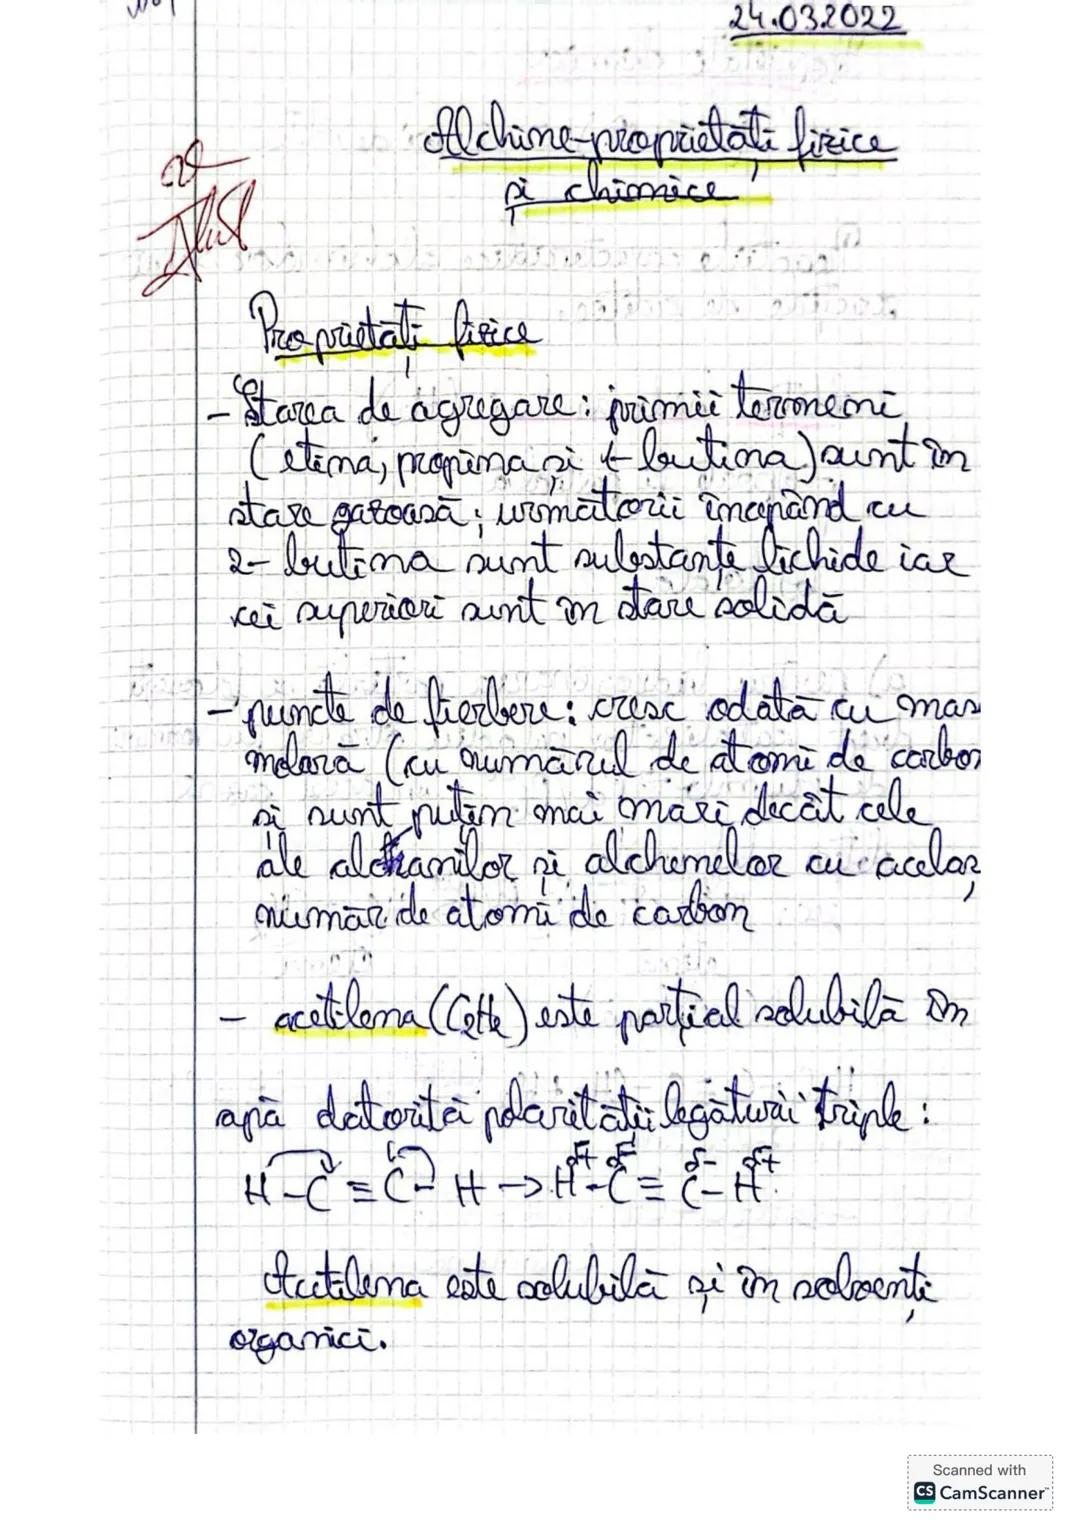 24.03.2022
Alchine-proprietăți fizice
și chimice
Proprietăți fizice
- Starea de agregare: primii termeni
(etina, propina și 1-butina) sunt în
stare gazoasă; următorii începând cu
2-butina sunt substanțe lichide iar
cei superiori sunt în stare solidă
- puncte de fierbere: cresc odată cu mas
molară (cu numărul de atomi de carbon
și sunt puțin mai mari decât cele
ale alcanilor și alchenelor cu același
număr de atomi de carbon
- acetilena (C2H2) este parțial solubilă în
apă datorită polarității legăturii triple:
H-C≡C-H → Hδ+-Cδ-≡Cδ--Hδ+
Acetilena este solubilă și în solvenți
organici.
Scanned with
CS CamScanner